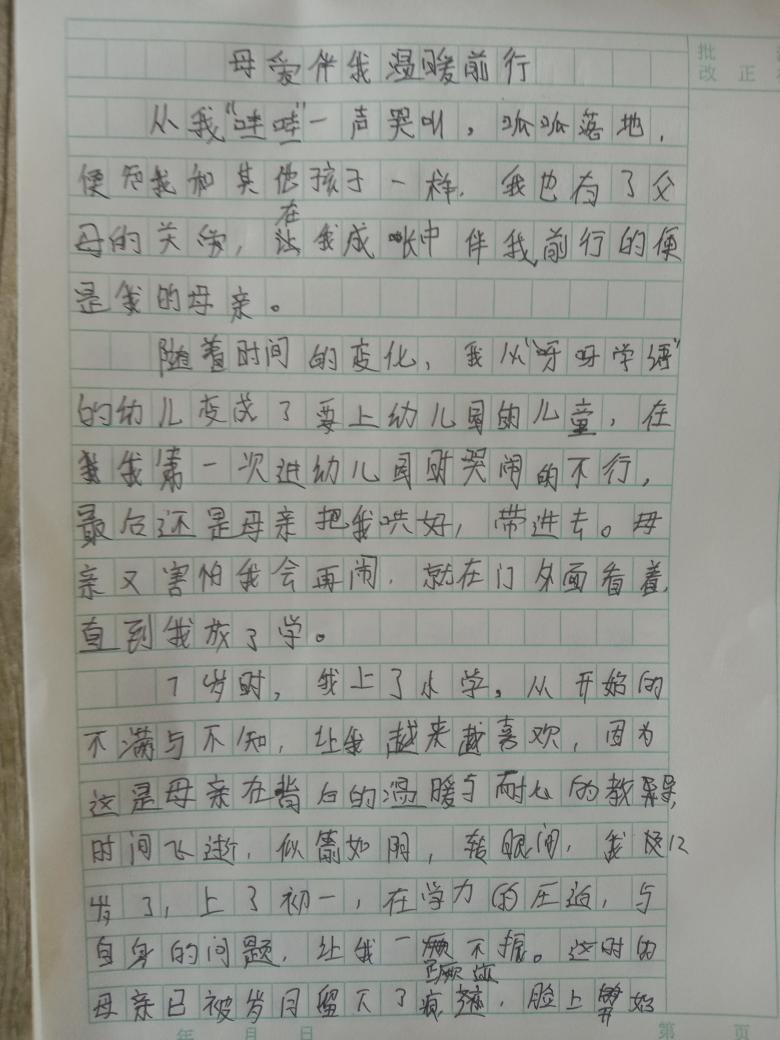 批 改 正
母爱伴我温暖前行
从我“哇哇”一声哭叫，呱呱落地，
便知我和其他孩子一样，我也有了父
母的关爱，在让我成长中伴我前行的便
是我的母亲。
随着时间的变化，我从“呀呀学语”
的幼儿变成了要上幼儿园的儿童，在
我第一次进幼儿园时哭闹的不行，
最后还是母亲把我哄好，带进去。母
亲又害怕我会再闹，就在门外面看着，
直到我放了学。
7岁时，我上了小学。从开始的
不满与不知，让我越来越喜欢，因为
这是母亲在背后的温暖与耐心的教导，
时间飞逝，似箭如阴，转眼间，我12
岁了，上了初一，在学力的压迫，与
自身的问题，让我一蹶不振。这时的
母亲已被岁月留下了痕迹，脸上开始
年 月 日 第 页